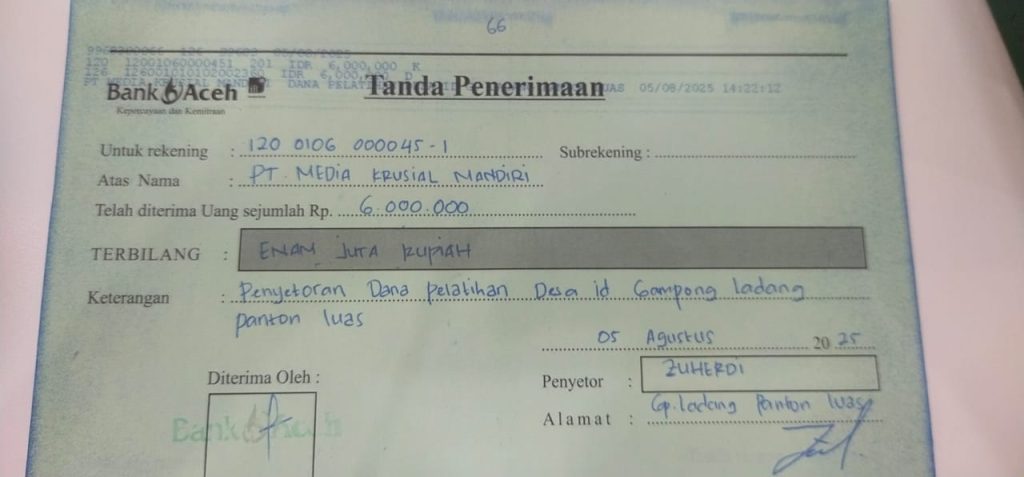 66
120 12001060000451 201 IDR 6,000,000 K
05/08/2025 14:22:12
Bank Aceh
Kepercayaan dan Kemitraan
Tanda Penerimaan
Untuk rekening : 120 0106 000045-1 Subrekening :
Atas Nama : PT. MEDIA KRUSIAL MANDIRI
Telah diterima Uang sejumlah Rp. 6.000.000
TERBILANG : ENAM JUTA RUPIAH
Keterangan : Penyetoran Dana pelatihan Desa id Gampong ladang
panton luas
05 Agustus 2025
Diterima Oleh :
Penyetor : ZUHERDI
Alamat : Gp. Ladang Panton luas
Bank Aceh